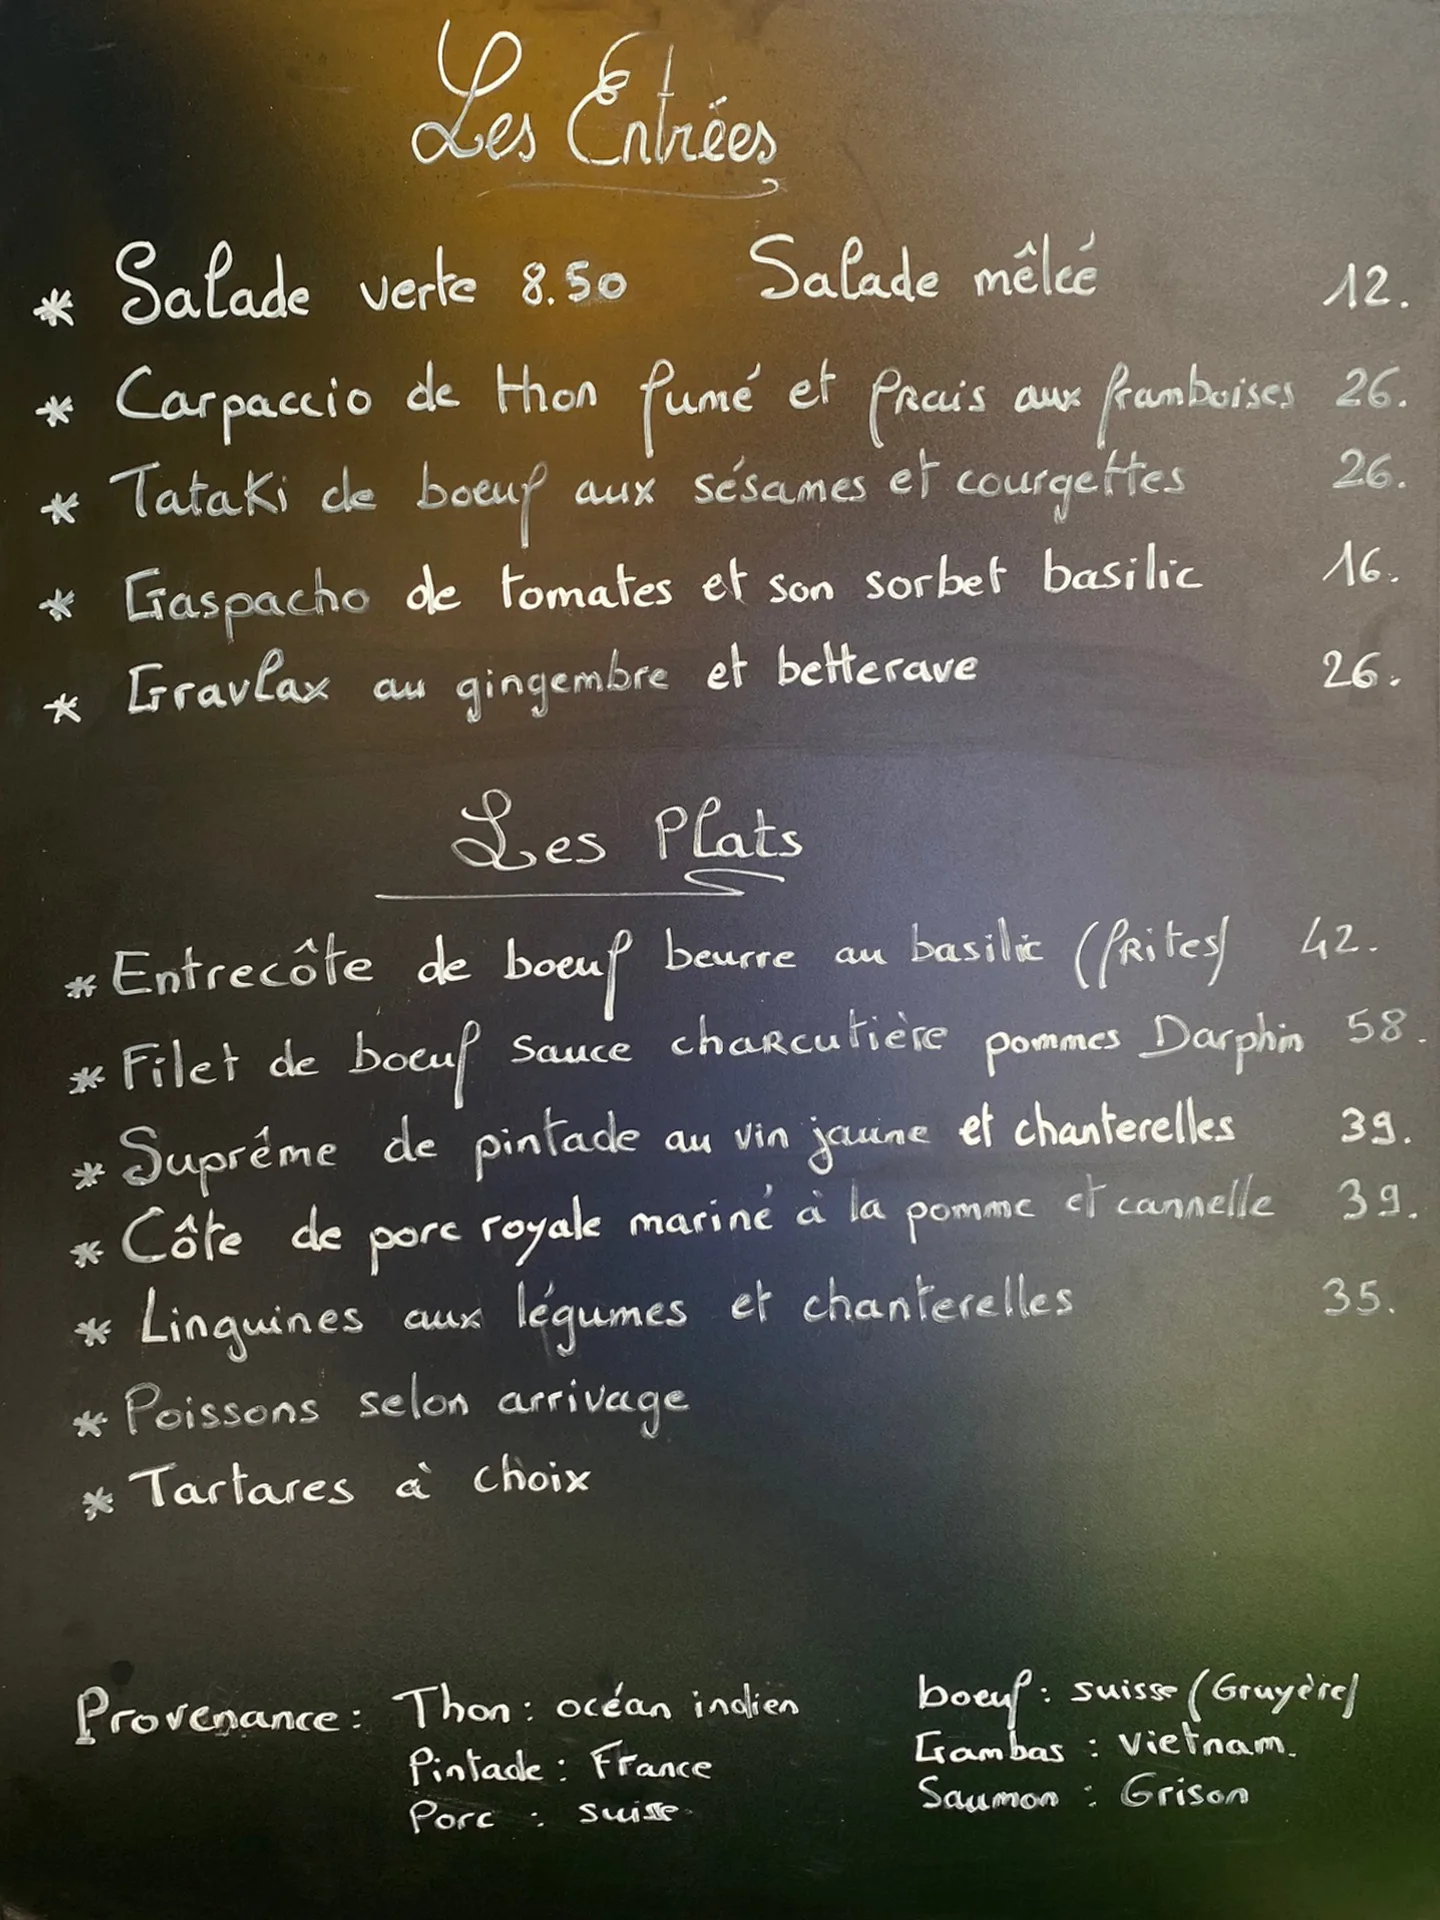 Les Entrées
* Salade verte 8.50 Salade mêlée 12.
* Carpaccio de thon fumé et frais aux framboises 26.
* Tataki de boeuf aux sésames et courgettes 26.
* Gaspacho de tomates et son sorbet basilic 16.
* Gravlax au gingembre et betterave 26.
Les Plats
* Entrecôte de boeuf beurre au basilic (frites) 42.
* Filet de boeuf sauce charcutière pommes Darphin 58.
* Suprême de pintade au vin jaune et chanterelles 39.
* Côte de porc royale mariné à la pomme et cannelle 39.
* Linguines aux légumes et chanterelles 35.
* Poissons selon arrivage
* Tartares à choix
Provenance: Thon: océan indien boeuf: suisse (Gruyère)
Pintade: France Gambas: Vietnam.
Porc: suisse Saumon: Grison